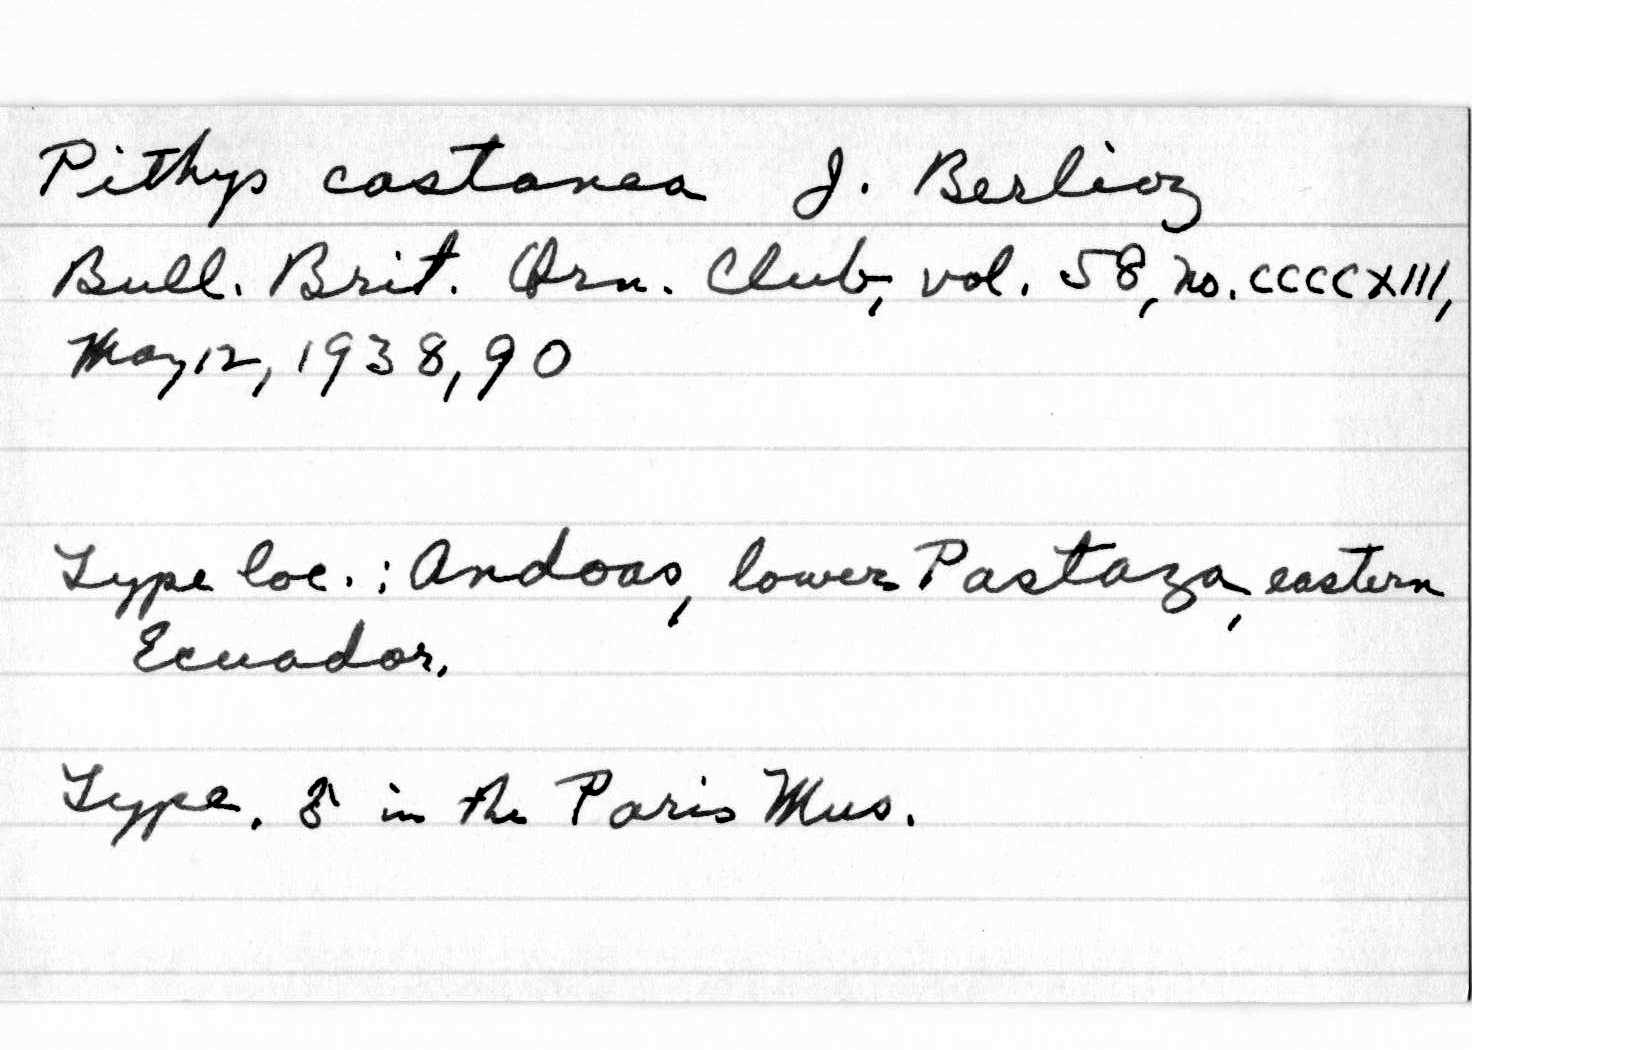 Pithys castanea J. Berlioz
Bull. Brit. Orn. Club, vol. 58, no. CCCCXIII,
May 12, 1938, 90
Type loc.: Andoas, lower Pastaza, eastern
Ecuador.
Type. ♂ in the Paris Mus.